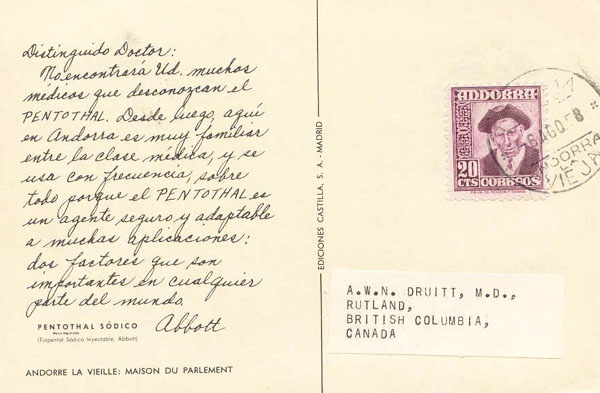 Distinguido Doctor:
No encontrará Ud. muchos
médicos que desconozcan el
PENTOTHAL. Desde luego, aquí
en Andorra es muy familiar
entre la clase médica, y se
usa con frecuencia, sobre
todo porque el PENTOTHAL es
un agente seguro y adaptable
a muchas aplicaciones;
dos factores que son
importantes en cualquier
parte del mundo.
Abbott
PENTOTHAL SÓDICO
Marca Registrada
(Tiopental Sódico Inyectable, Abbott)
ANDORRE LA VIEILLE: MAISON DU PARLEMENT
EDICIONES CASTILLA, S. A. - MADRID
ANDORRA
20
CTS CORREOS
AGO 58
ANDORRA
VIEJA
A.W.N. DRUITT, M.D.,
RUTLAND,
BRITISH COLUMBIA,
CANADA